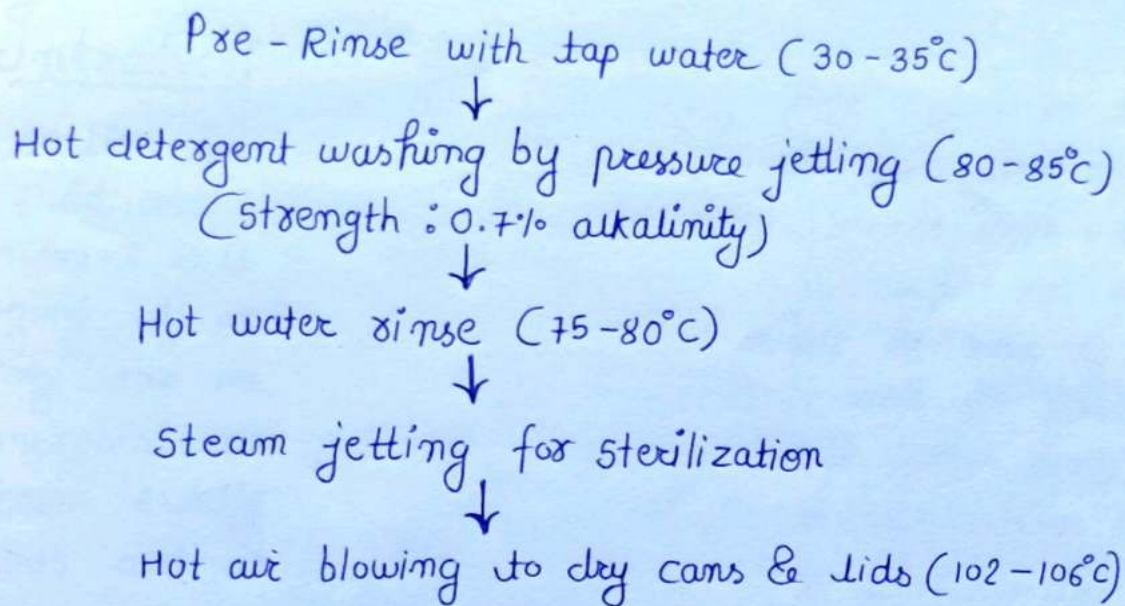 Pre-Rinse with tap water (30-35°C)
↓
Hot detergent washing by pressure jetting (80-85°C)
(Strength : 0.7% alkalinity)
↓
Hot water rinse (75-80°C)
↓
Steam jetting for sterilization
↓
Hot air blowing to dry cans & lids (102-106°C)